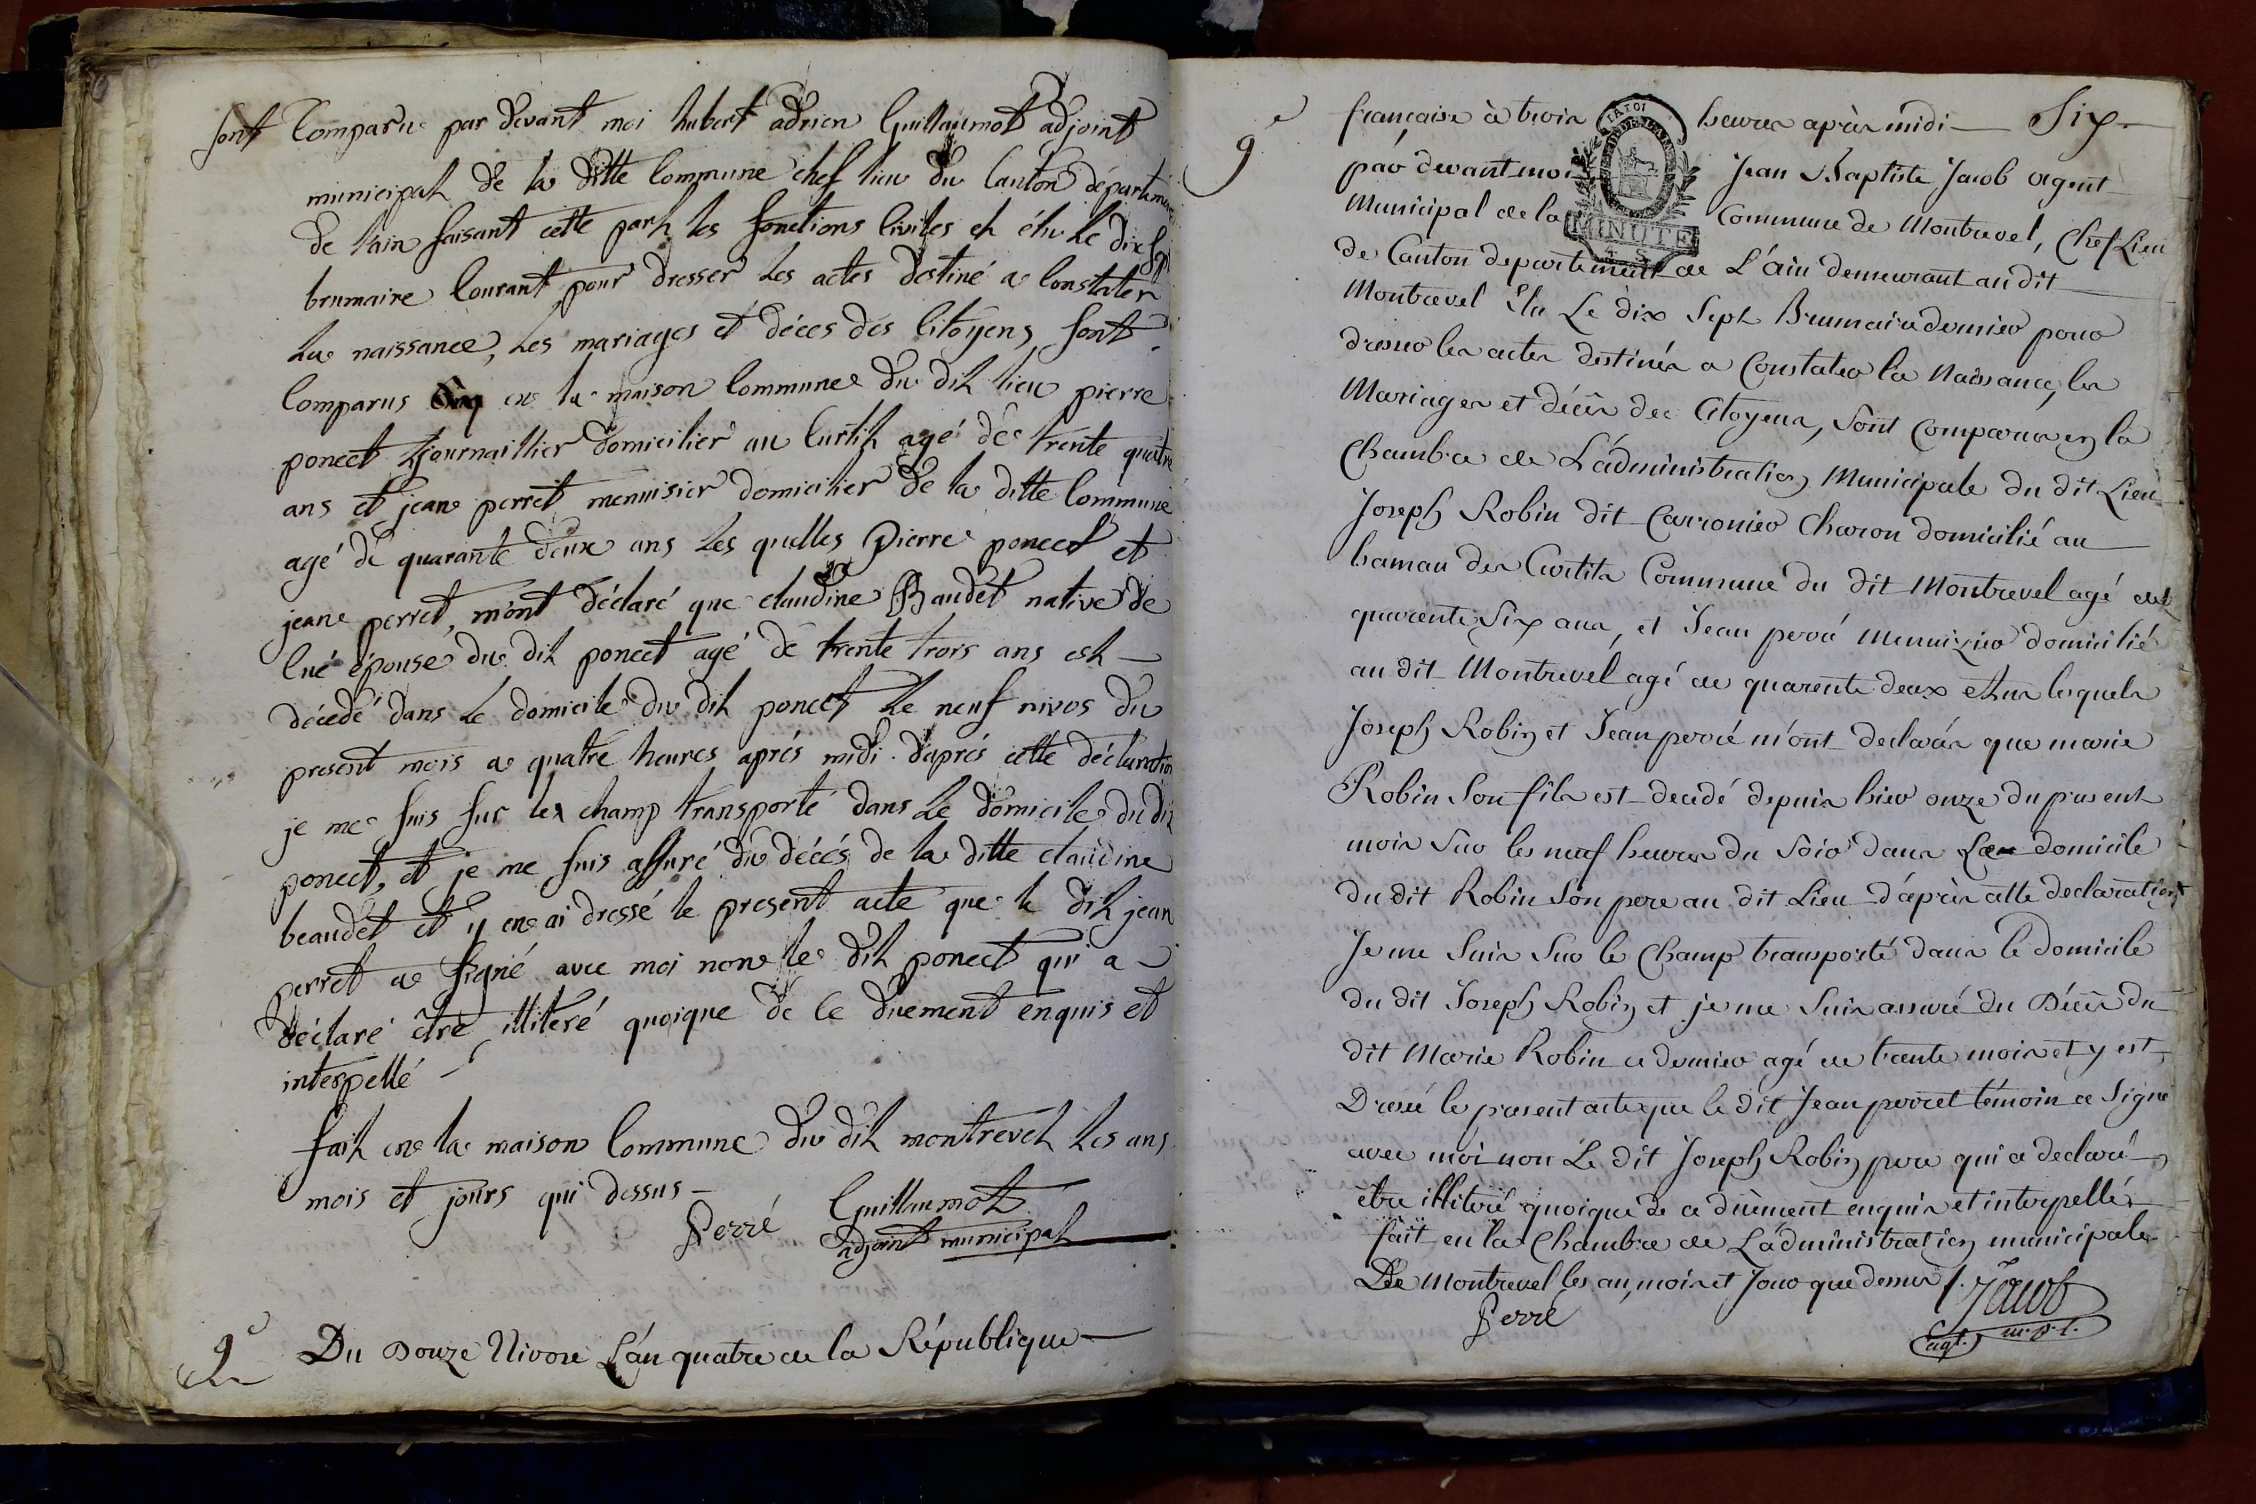 sont Comparu par devant moi hubert adrien Guillaumot adjoint
municipal de la ditte Commune chef lieu du Canton département
de l'ain faisant cette part les fonctions Civiles et élu le dix sept
brumaire Courant pour dresser les actes destiné a Constater
la naissance, les mariages et déces des Citoyens, sont
Comparus en la maison Commune du dit lieu pierre
poncet journaillier domicilier au Curtit agé de trente quatre
ans et jean perret menuisier domicilier de la ditte Commune
agé de quarante deux ans les quelles Pierre poncet et
jean perret, m'ont déclaré que claudine Baudet native de
Cué épouse du dit poncet agé de trente trois ans est
décedé dans le domicile du dit poncet le neuf nivos du
present mois a quatre heures aprés midi. d'aprés cette déclaration
je me suis sur les champ transporté dans le domicile du dit
poncet, et je me suis assuré du décés de la ditte claudine
beaudet et y en ai dressé le present acte que le dit jean
perret a signé avec moi non le dit poncet qui a
déclaré être illiteré quoique de Ce duement enquis et
interpellé
fait en la maison Commune du dit montrevel les ans
mois et jours qui dessus
Perré Guillaumot
adjoint municipal
9e Du Douze Nivose L'an quatre de la République
9e française à trois heures après midi Six
par devant moi Jean Baptiste Jacob agent
Municipal de la Commune de Montrevel, Chef Lieu
MINUTE
de Canton departement de L'ain demeurant au dit
Montrevel Elu Le dix Sept Brumaire dernier pour
dresser les actes destinés a Constater la Naissance, les
Mariages et décès des Citoyens, Sont Comparus en la
Chambre de L'administration Municipale du dit Lieu
Joseph Robin dit Carronier Charon domicilié au
hamau des Curtits Commune du dit Montrevel agé de
quarente Six ans, et Jean perré Menuizier domicilié
au dit Montrevel agé de quarente deux et Les lequels
Joseph Robin et Jean perré m'ont declarés que marie
Robin Son fils est decedé depuis hier onze du present
mois Sur les neuf heures du Soir dans Le domicile
du dit Robin Son pere au dit Lieu d'après cette declaration
Je me Suis Sur le Champ transporté dans le domicile
du dit Joseph Robin et je me Suis assuré du Décès du
dit Marie Robin ce dernier agé de trente mois et y est
Dressé le present acte que le dit Jean perret témoin a Signé
avec moi non Le dit Joseph Robin pere qui a declaré
être illiteré quoique de ce duëment enquis et interpellé
fait en la Chambre de L'administration municipale
De Montrevel les an, mois et Jour que dessus /.
Perré Jacob
agt. m.p.l.